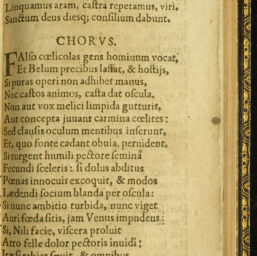 Linquamus aram, castra repetamus, viri.
Sanctum deus diesq; consilium dabunt.
CHORVS.
FAlso cœlicolas gens hominum vocat,
Et Belum precibus lassat, & hostijs,
Si puras operi non adhibet manus,
Nec castos animos, casta dat oscula.
Non aut vox melici limpida gutturis,
Aut concepta juuant carmina cœlites:
Sed clausis oculum mentibus inserunt,
Et, quo fonte cadant obuia, peruident,
Si turgent humili pectore semina
Fecundi sceleris: si dolus abditus
Pœnas innocuis excoquit, & modos
Lædendi socium blanda per oscula:
Si nunc ambitio turbida, nunc viget
Auri fœda sitis, jam Venus impudens:
Si, Nili facie, viscera proluit
Atro felle dolor pectoris inuidi:
& omnibus